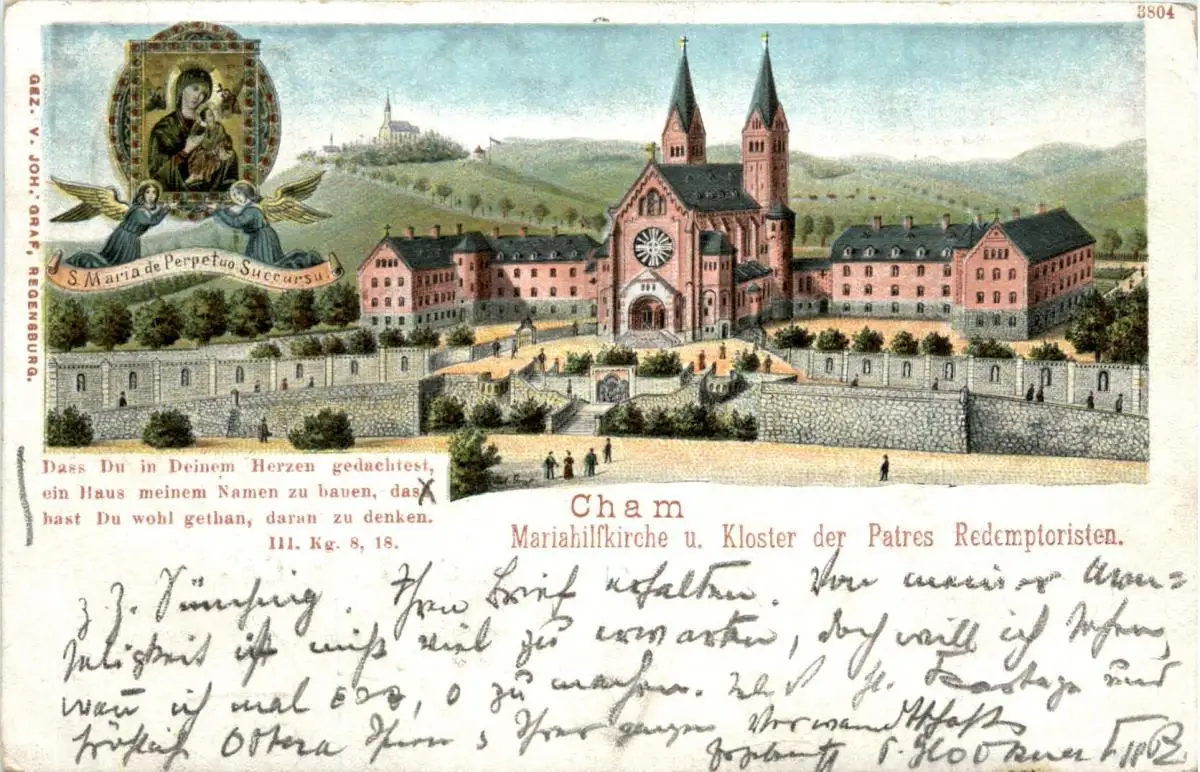 3804
GEZ. V. JOH. GRAF, REGENSBURG.
S. Maria de Perpetuo Succursu
Dass Du in Deinem Herzen gedachtest,
ein Haus meinem Namen zu bauen, das
hast Du wohl gethan, daran zu denken.
III. Kg. 8, 18.
Cham
Mariahilfkirche u. Kloster der Patres Redemptoristen.
z. Z. Sünching. Ihren Brief erhalten. Von meiner Arm-
seligkeit ist nicht viel zu erwarten, doch will ich sehen,
wan ich mal etw. zu machen. hl. Festtage und
fröhliche Ostern Ihnen u. Ihrer ganzen Verwandtschaft
P.